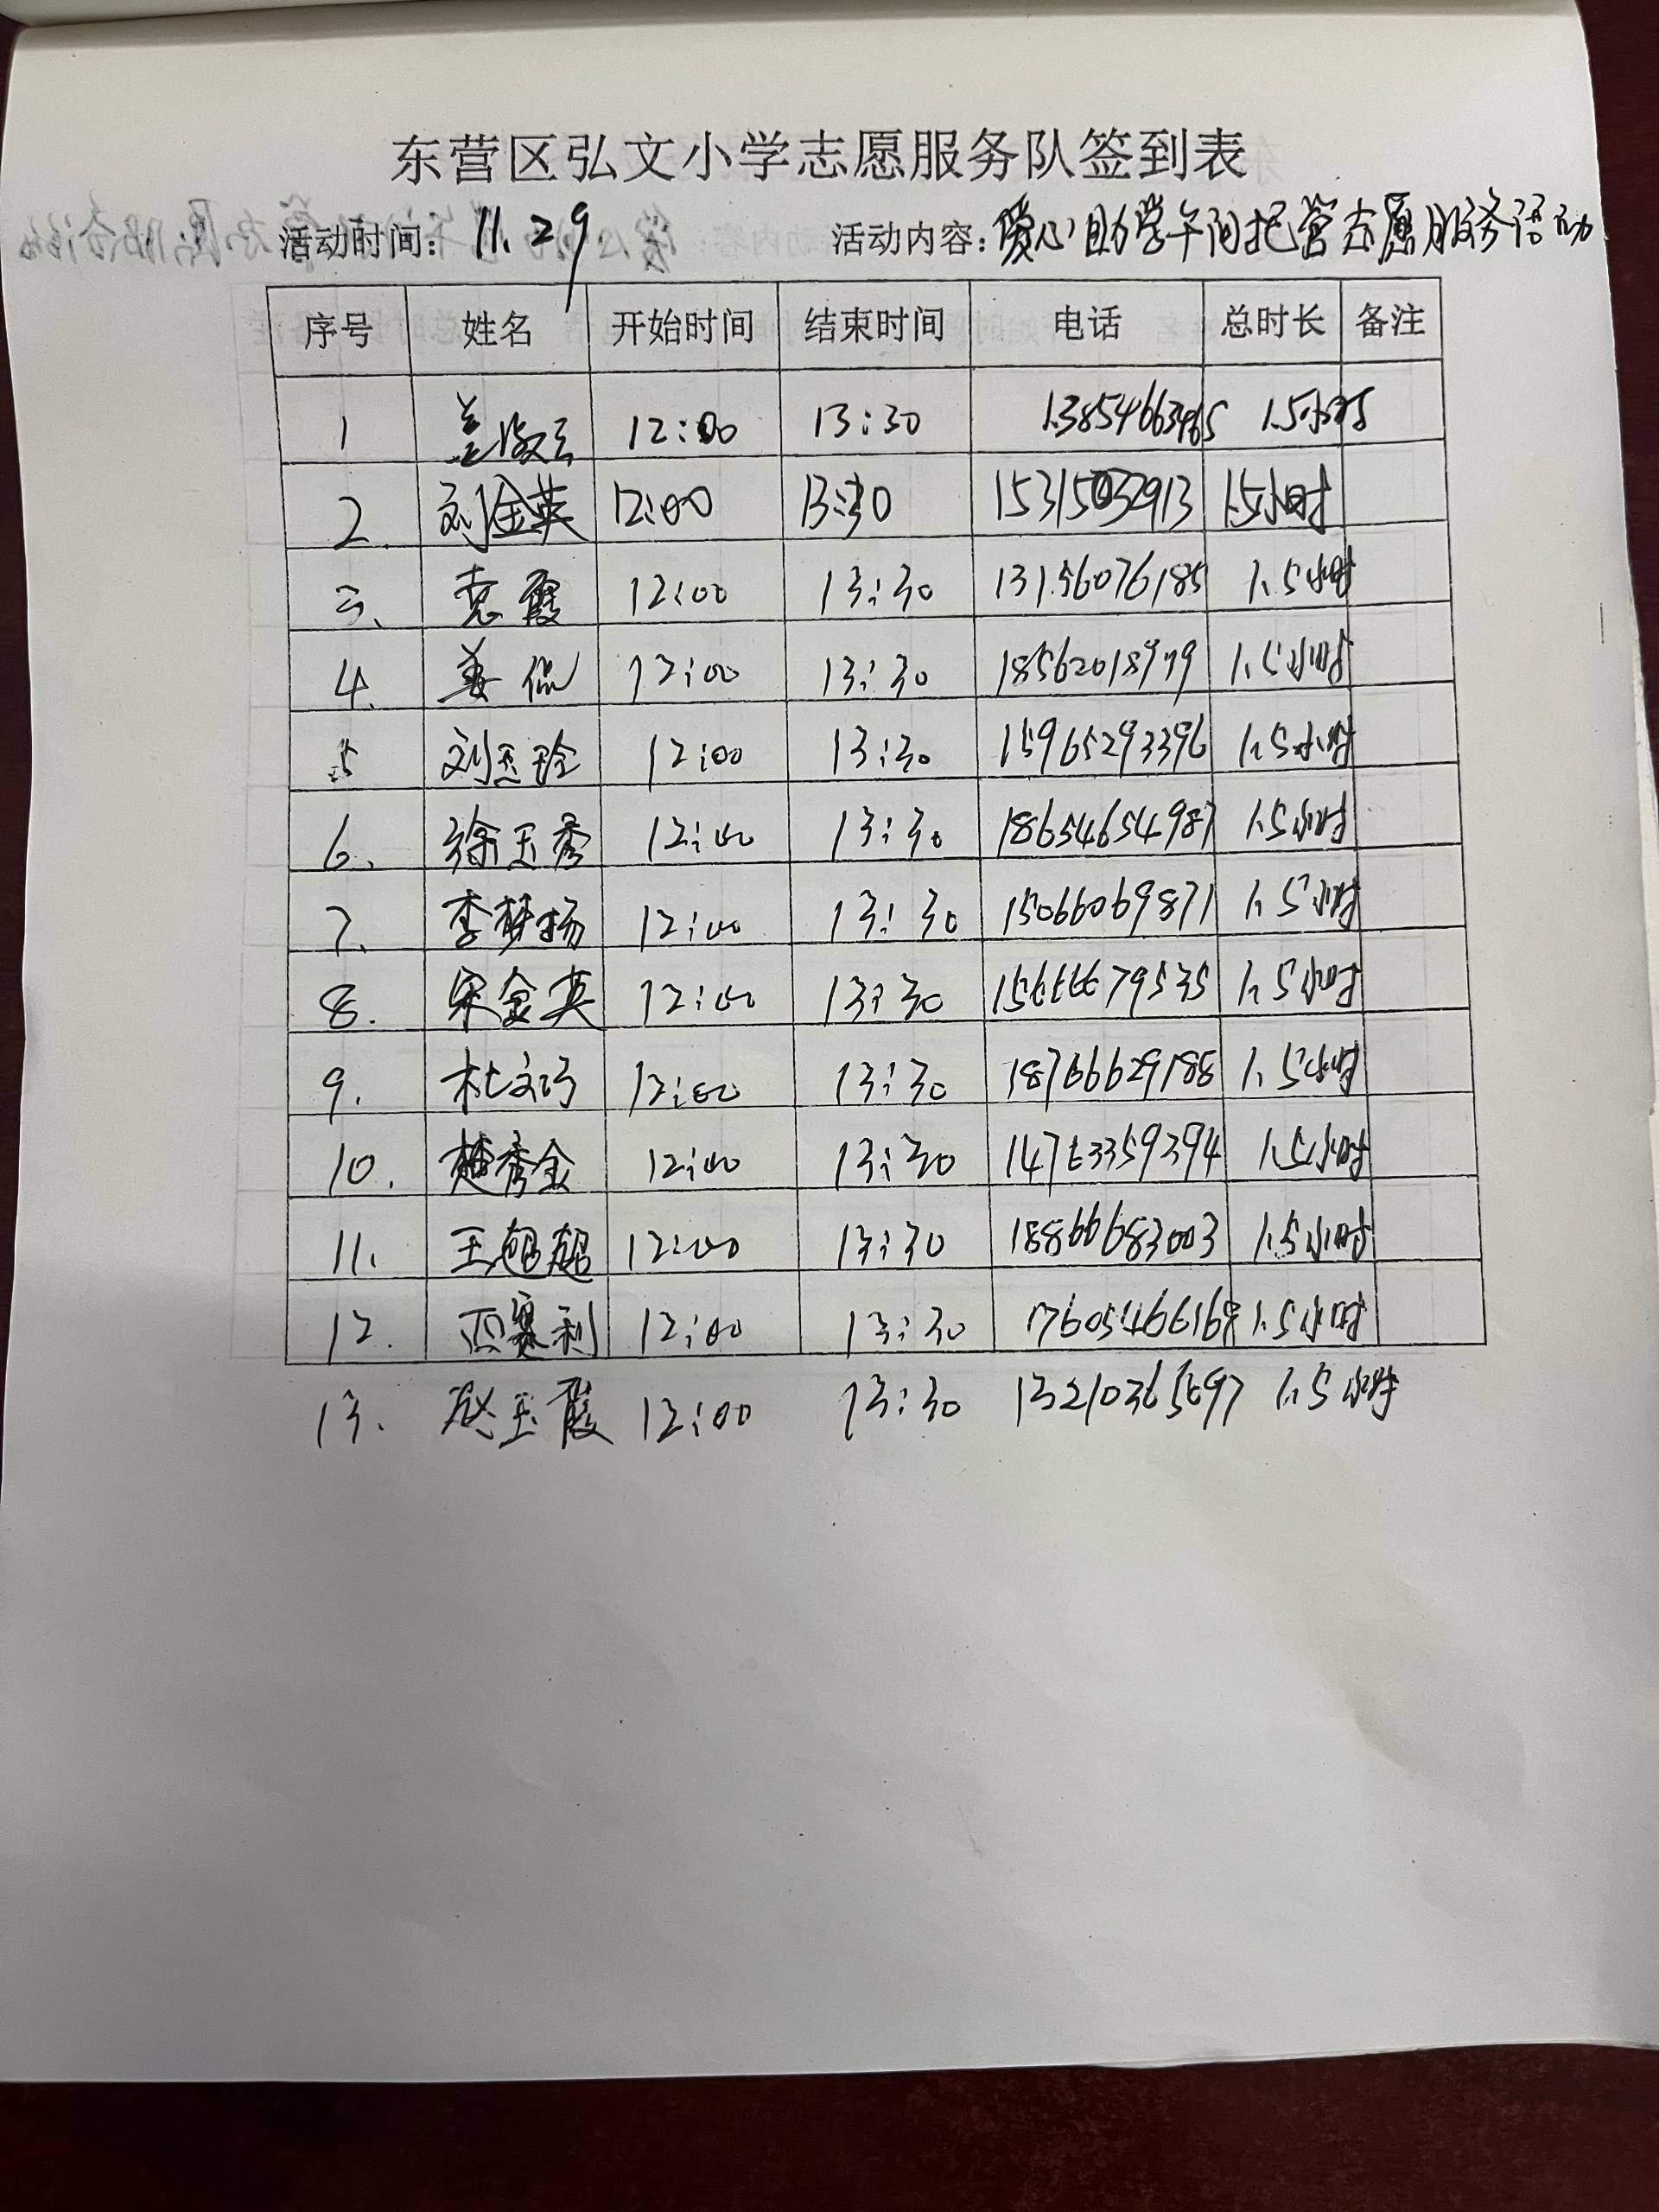 东营区弘文小学志愿服务队签到表
活动时间：11.29 活动内容：爱心助学午间托管志愿服务活动
序号 姓名 开始时间 结束时间 电话 总时长 备注
1 12:00 13:30 13854663965 1.5小时
2. 刘金英 12:00 13:30 15315032913 1.5小时
3、 袁霞 12:00 13:30 13156076185 1.5小时
4. 姜侃 12:00 13:30 18562018979 1.5小时
5 刘玉玲 12:00 13:30 15965293396 1.5小时
6、 徐玉秀 12:00 13:30 18654654987 1.5小时
7、 李梦扬 12:00 13:30 15066069871 1.5小时
8. 宋金英 12:00 13:30 15666679535 1.5小时
9. 杜文巧 12:00 13:30 18766629188 1.5小时
10. 楚秀金 12:00 13:30 14763359394 1.5小时
11. 王超超 12:00 13:30 18866683003 1.5小时
12. 西赛利 12:00 13:30 17605466168 1.5小时
13. 赵玉霞 12:00 13:30 13210365697 1.5小时